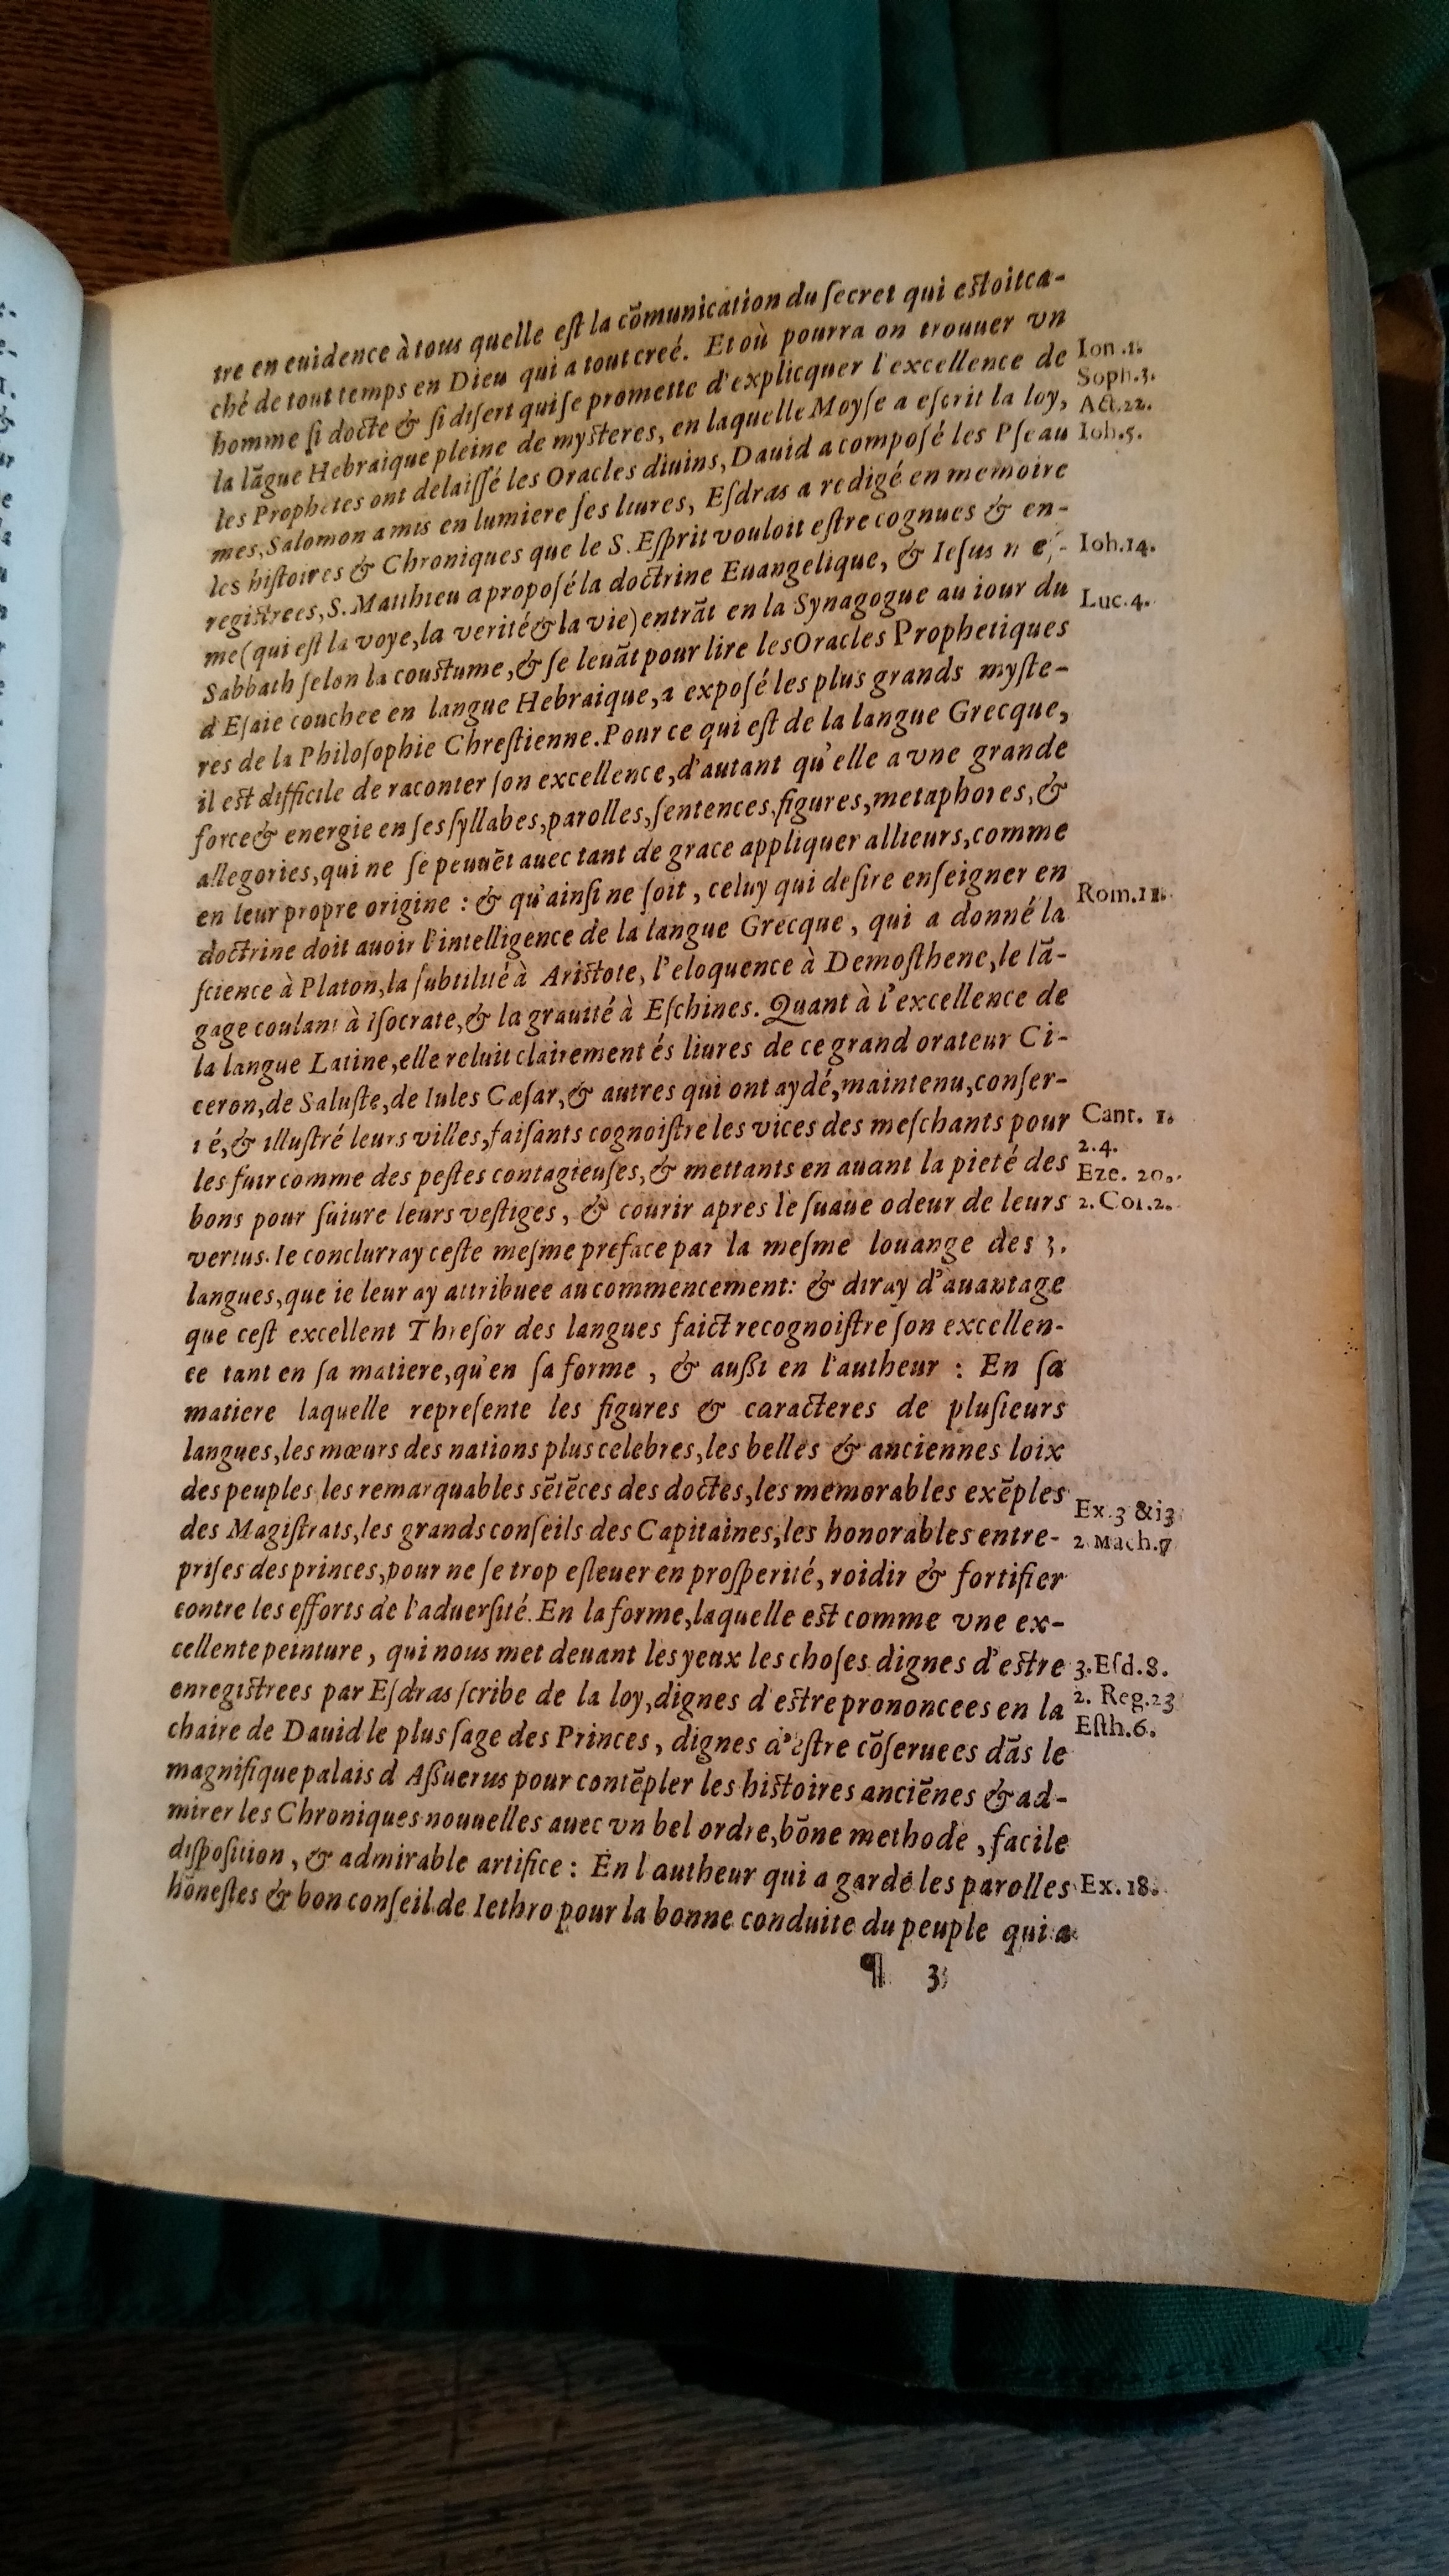 tre en euidence à tous quelle eſt la cõmunication du ſecret qui eſtoit ca-
ché de tout temps en Dieu qui a tout creé. Et où pourra on trouuer vn
homme ſi docte & ſi diſert qui ſe promette d'explicquer l'excellence de
la lãgue Hebraique pleine de myſteres, en laquelle Moyſe a eſcrit la loy,
les Prophetes ont delaiſſé les Oracles diuins, Dauid a compoſé les Pſeau
mes, Salomon a mis en lumiere ſes liures, Eſdras a redigé en memoire
les hiſtoires & Chroniques que le S. Eſprit vouloit eſtre cognues & en-
regiſtrees, S. Matthieu a propoſé la doctrine Euangelique, & Ieſus
me (qui eſt la voye, la verité & la vie) entrãt en la Synagogue au iour du
Sabbath ſelon la couſtume, & ſe leuãt pour lire les Oracles Prophetiques
d'Eſaie couchee en langue Hebraique, a expoſé les plus grands myſte-
res de la Philoſophie Chreſtienne. Pour ce qui eſt de la langue Grecque,
il eſt difficile de raconter ſon excellence, d'autant qu'elle a vne grande
force & energie en ſes ſyllabes, parolles, ſentences, figures, metaphores, &
allegories, qui ne ſe peuuẽt auec tant de grace appliquer allieurs, comme
en leur propre origine : & qu'ainſi ne ſoit, celuy qui deſire enſeigner en
doctrine doit auoir l'intelligence de la langue Grecque, qui a donné la
ſcience à Platon, la ſubtilité à Ariſtote, l'eloquence à Demoſthene, le lã-
gage coulant à Iſocrate, & la grauité à Eſchines. Quant à l'excellence de
la langue Latine, elle reluit clairement és liures de ce grand orateur Ci-
ceron, de Saluſte, de Iules Cæſar, & autres qui ont aydé, maintenu, conſer-
ué, & illuſtré leurs villes, faiſants cognoiſtre les vices des meſchants pour
les fuir comme des peſtes contagieuſes, & mettants en auant la pieté des
bons pour ſuiure leurs veſtiges, & courir apres le ſuaue odeur de leurs
vertus. Ie conclurray ceſte meſme preface par la meſme louange des 3.
langues, que ie leur ay attribuee au commencement: & diray d'auantage
que ceſt excellent Threſor des langues faict recognoiſtre ſon excellen-
ce tant en ſa matiere, qu'en ſa forme, & außi en l'autheur : En ſa
matiere laquelle repreſente les figures & caracteres de pluſieurs
langues, les mœurs des nations plus celebres, les belles & anciennes loix
des peuples les remarquables sẽtẽces des doctes, les memorables exẽples
des Magiſtrats, les grands conſeils des Capitaines, les honorables entre-
priſes des princes, pour ne ſe trop eſleuer en proſperité, roidir & fortifier
contre les efforts de l'aduerſité. En la forme, laquelle eſt comme vne ex-
cellente peinture, qui nous met deuant les yeux les choſes dignes d'eſtre
enregiſtrees par Eſdras ſcribe de la loy, dignes d'eſtre prononcees en la
chaire de Dauid le plus ſage des Princes, dignes d'eſtre cõſeruees dãs le
magnifique palais d'Aßuerus pour contẽpler les hiſtoires anciẽnes & ad-
mirer les Chroniques nouuelles auec vn bel ordre, bõne methode, facile
diſpoſition, & admirable artifice : En l'autheur qui a gardé les parolles
hõneſtes & bon conſeil de Iethro pour la bonne conduite du peuple qui a
¶ 3
Ion.1.
Soph.3.
Act.22.
Ioh.5.
Ioh.14.
Luc.4.
Rom.12.
Cant. 1.
2.4.
Eze. 20.
2. Cor.2.
Ex.3 & 13
2 Mach.7
3.Eſd.8.
2. Reg.23
Eſth.6.
Ex.18.